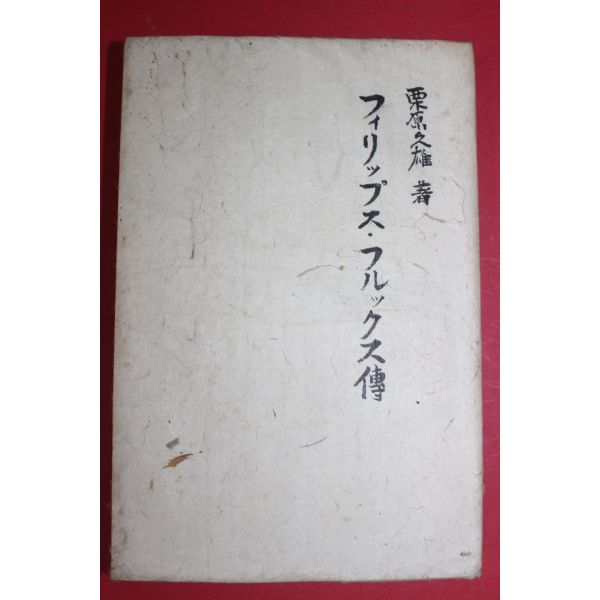 栗原久雄 著
フィリップス・フルックス傳